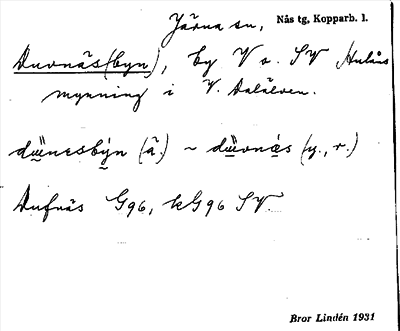 Järna sn, Nås tg, Kopparb. l.
Duvnäs (byn), by V o. SV Hulåns
mynning i V. Dalälven.
(ä.) ~ (y., r.)
Dufnäs G96, kG96 SV.
Bror Lindén 1931